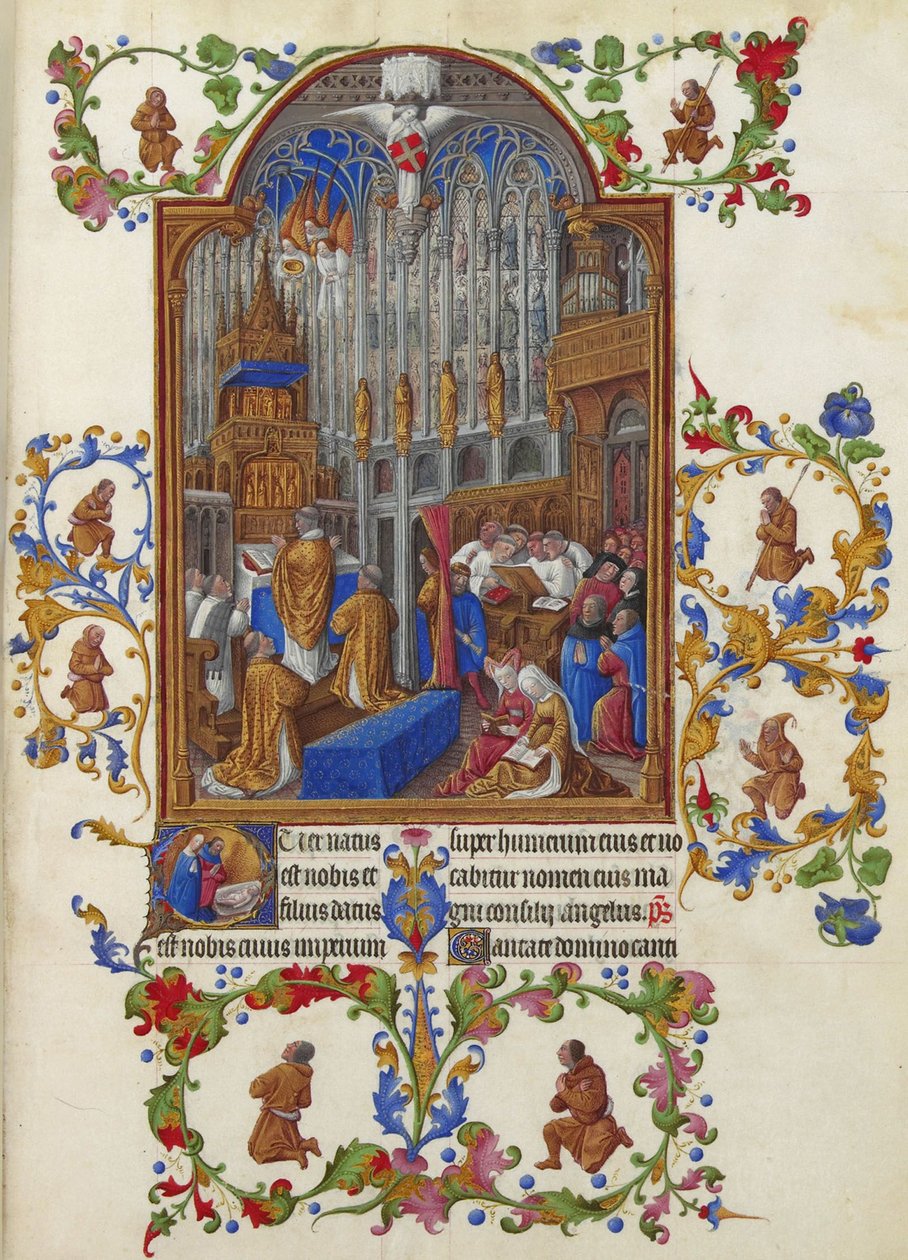 PUer natus
est nobis et
filius datus
est nobis cuius imperium
super humerum eius et uo
cabitur nomen eius ma
gni consilij angelus. ps
Cantate domino canti